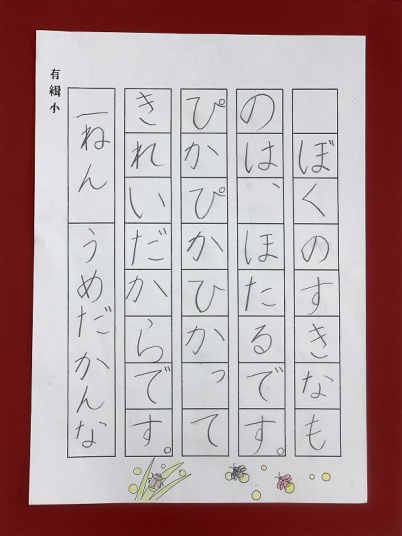 ぼくのすきなも
のは、ほたるです。
ぴかぴかひかって
きれいだからです。
一ねん うめだかんな
有緝小